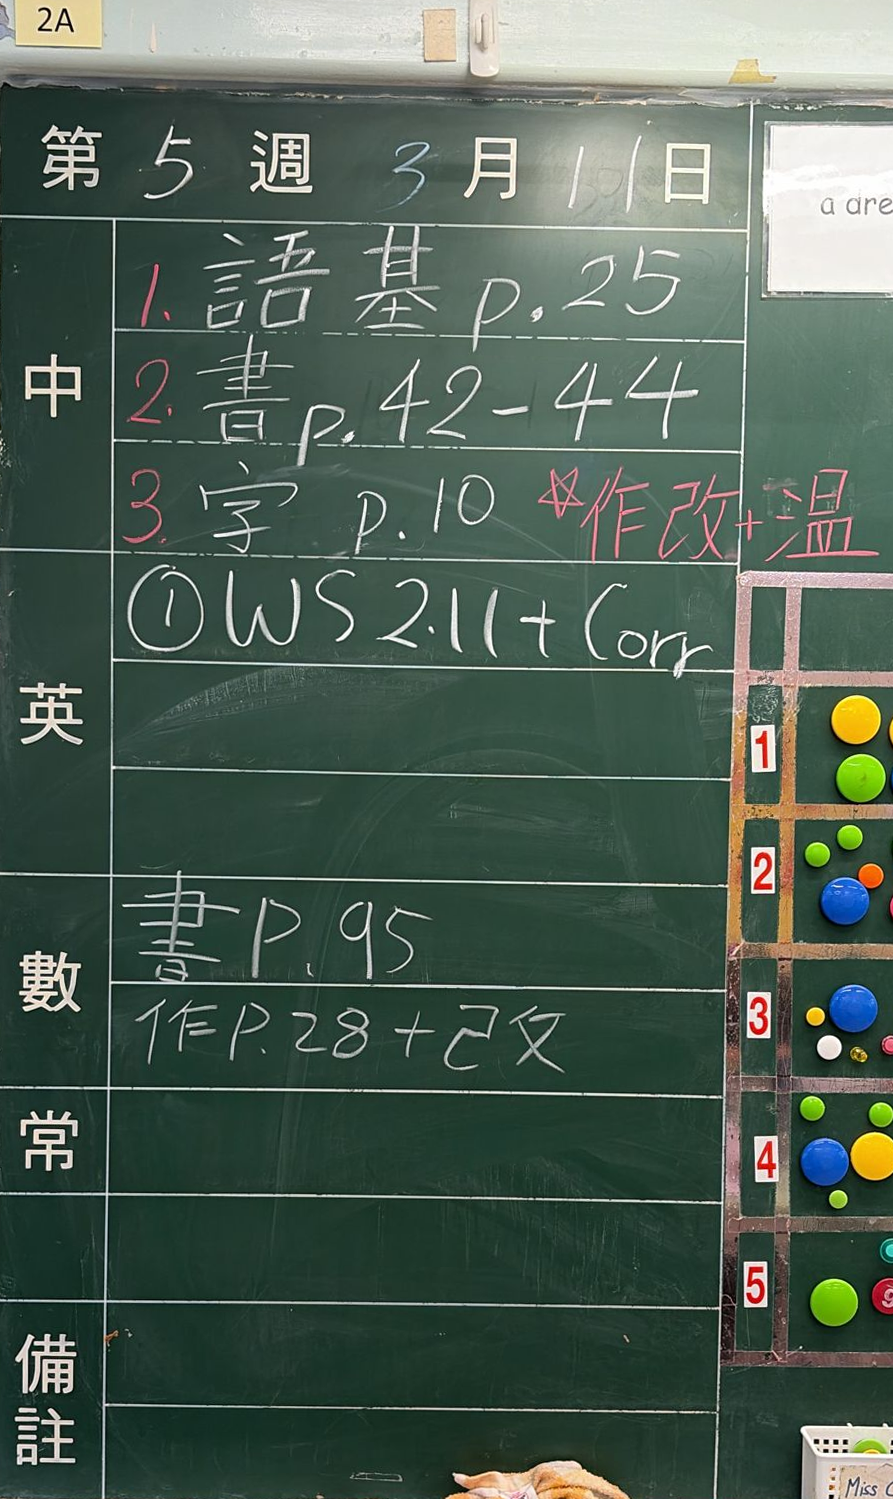 2A
第 5 週 3 月 11 日
a dre
中
1. 語基 p.25
2. 書 p.42-44
3. 字 p.10 ☆作改+温
英
① WS 2.11 + Corr
數
書 P.95
作 P.28 + 改
常
備註
1
2
3
4
5
Miss